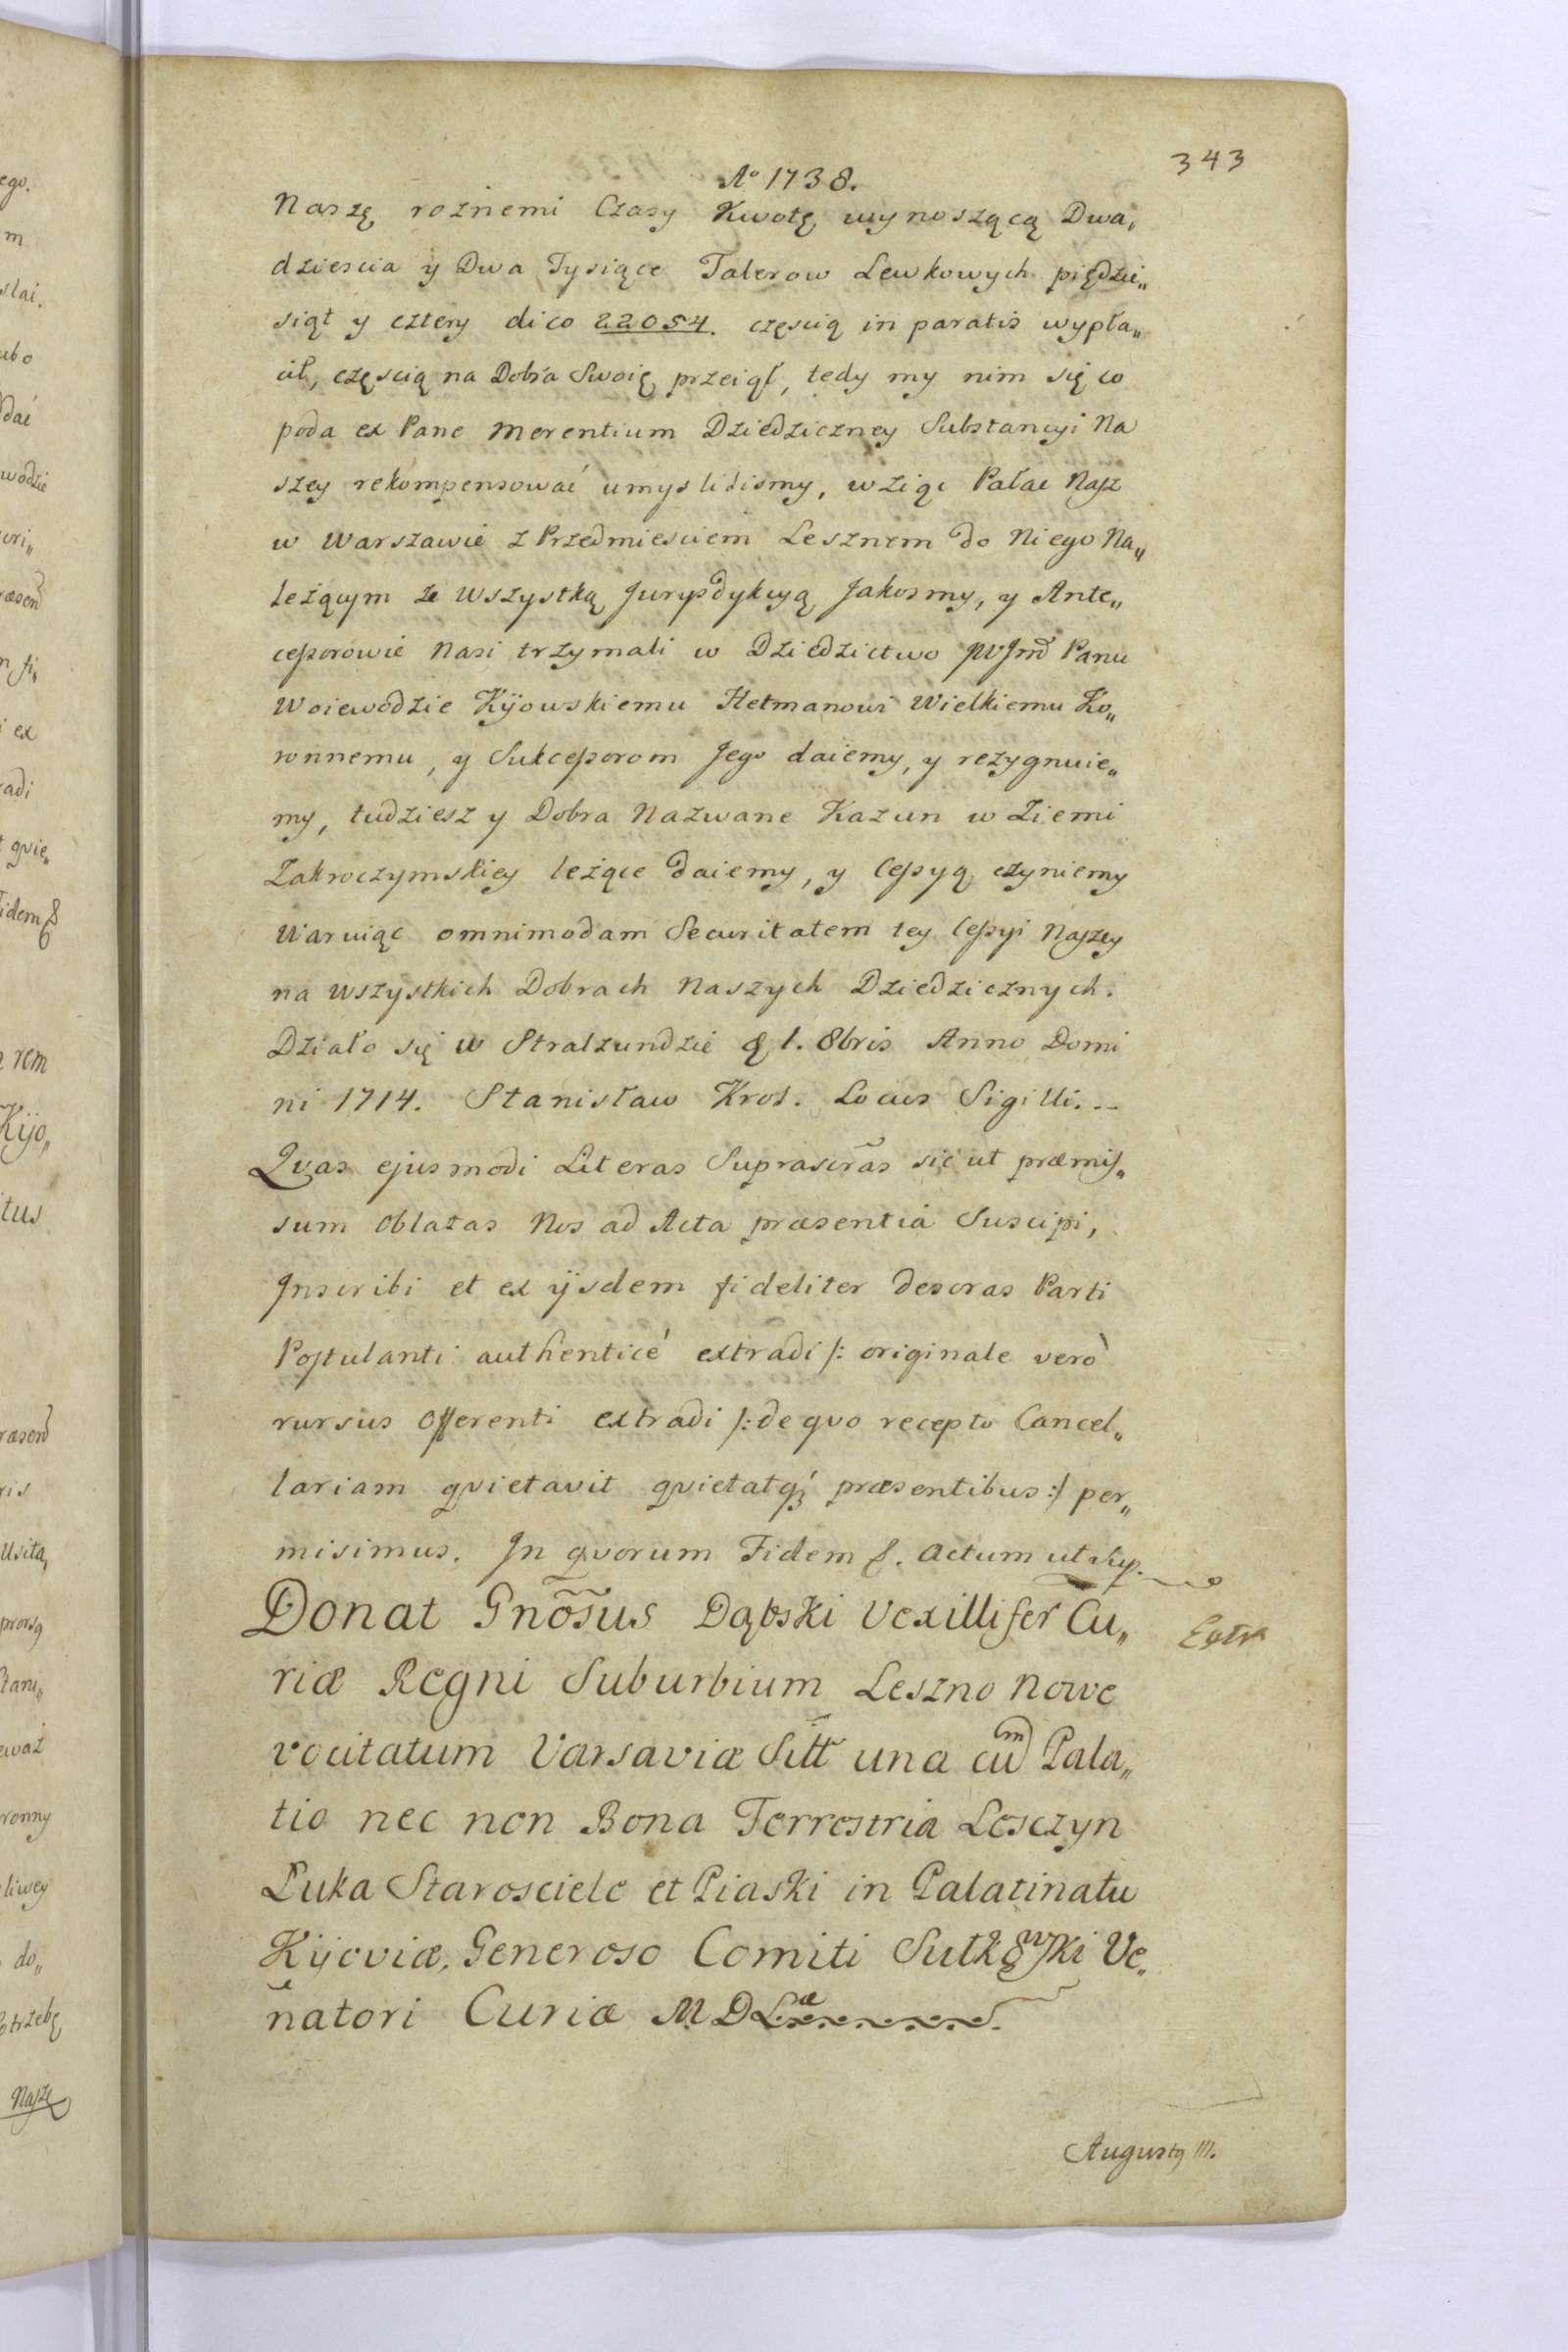 343
Aº 1738.
Naszę rożnemi Czasy Kwotę wynoszącą Dwa„
dziescia y Dwa Tysiące Talerow Lewkowych piędzie„
siąt y cztery dico 22054. częscią in paratis wypła„
cił, częscią na Dobra Swoię przeiął, tedy my nim się co
poda ex Pane Merentium Dziedziczney Substancyi Na
szey rekompensować umyslilismy, wziąc Pałac Nasz
w Warszawie z Przedmiesciem Lesznem do Niego Na„
leżącym ze Wszystką Jurysdykcyą Jakosmy, y Ante„
cessorowie Nasi trzymali w Dziedzictwo JWJmć Panu
Woiewodzie Kijowskiemu Hetmanowi Wielkiemu Ko„
ronnemu, y Sukcessorom Jego daiemy, y rezygnuie„
my, tudziesz y Dobra Nazwane Kazun w Ziemi
Zakroczymskiey leżące daiemy, y Cessyą czyniemy
Waruiąc omnimodam Securitatem tey Cessyi Naszey
na Wszystkich Dobrach Naszych Dziedzicznych.
Działo się w Stralzundzie d 1. 8bris Anno Domi
ni 1714. Stanisław Krol. Locus Sigilli. --
Quas ejusmodi Literas Suprascras̃ sic ut præmis„
sum oblatas Nos ad Acta præsentia Suscipi,
Inscribi et ex ijsdem fideliter descras Parti
Postulanti authenticè extradi /: originale verò
rursus Offerenti extradi /: de quo recepto Cancel„
lariam quietavit quietatq; præsentibus :/ per„
misimus. In quorum Fidem &. Actum ut sup.
Donat Gnõsus Dąbski Vexillifer Cu„
riæ Regni Suburbium Leszno Nowe
vocitatum Varsaviæ Sitt̃ una cum Pala„
tio nec non Bona Terrestria Lesczyn
Puka Starosciele et Piaski in Palatinatu
Kijoviæ, Generoso Comiti Sułkowski Ve„
natori Curiæ M D Læ
Extr
Augustq III.
ego.
m
ubo
dać
wodzie
ex
adi
idem &
rem
Kijo„
itus
ris
Usita
eważ
ronny
liwey
do„
otrzebę
Naszę